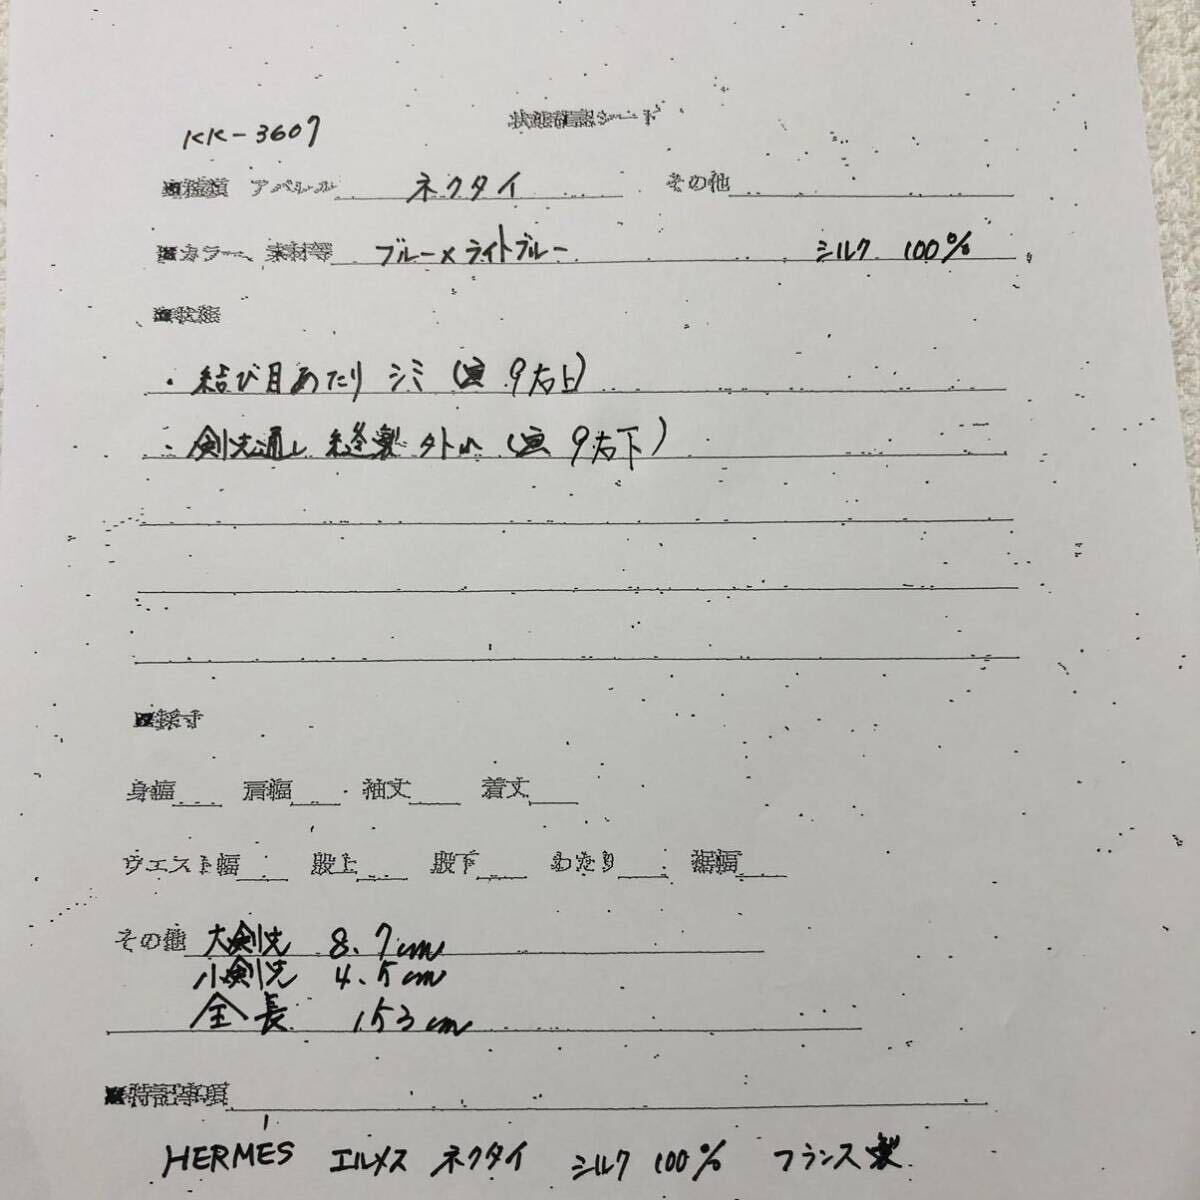 状態確認シート
KK-3607
■種類 アパレル ネクタイ その他
■カラー、素材等 ブルー×ライトブルー シルク 100%
■状態
・結び目あたり シミ (画 9右上)
・剣先通し 縫製 外れ (画 9右下)
■採寸
身幅 肩幅 袖丈 着丈
ウエスト幅 股上 股下 わたり 裾幅
その他 大剣先 8.7cm
小剣先 4.5cm
全長 153cm
■特記事項
HERMÈS エルメス ネクタイ シルク 100% フランス製